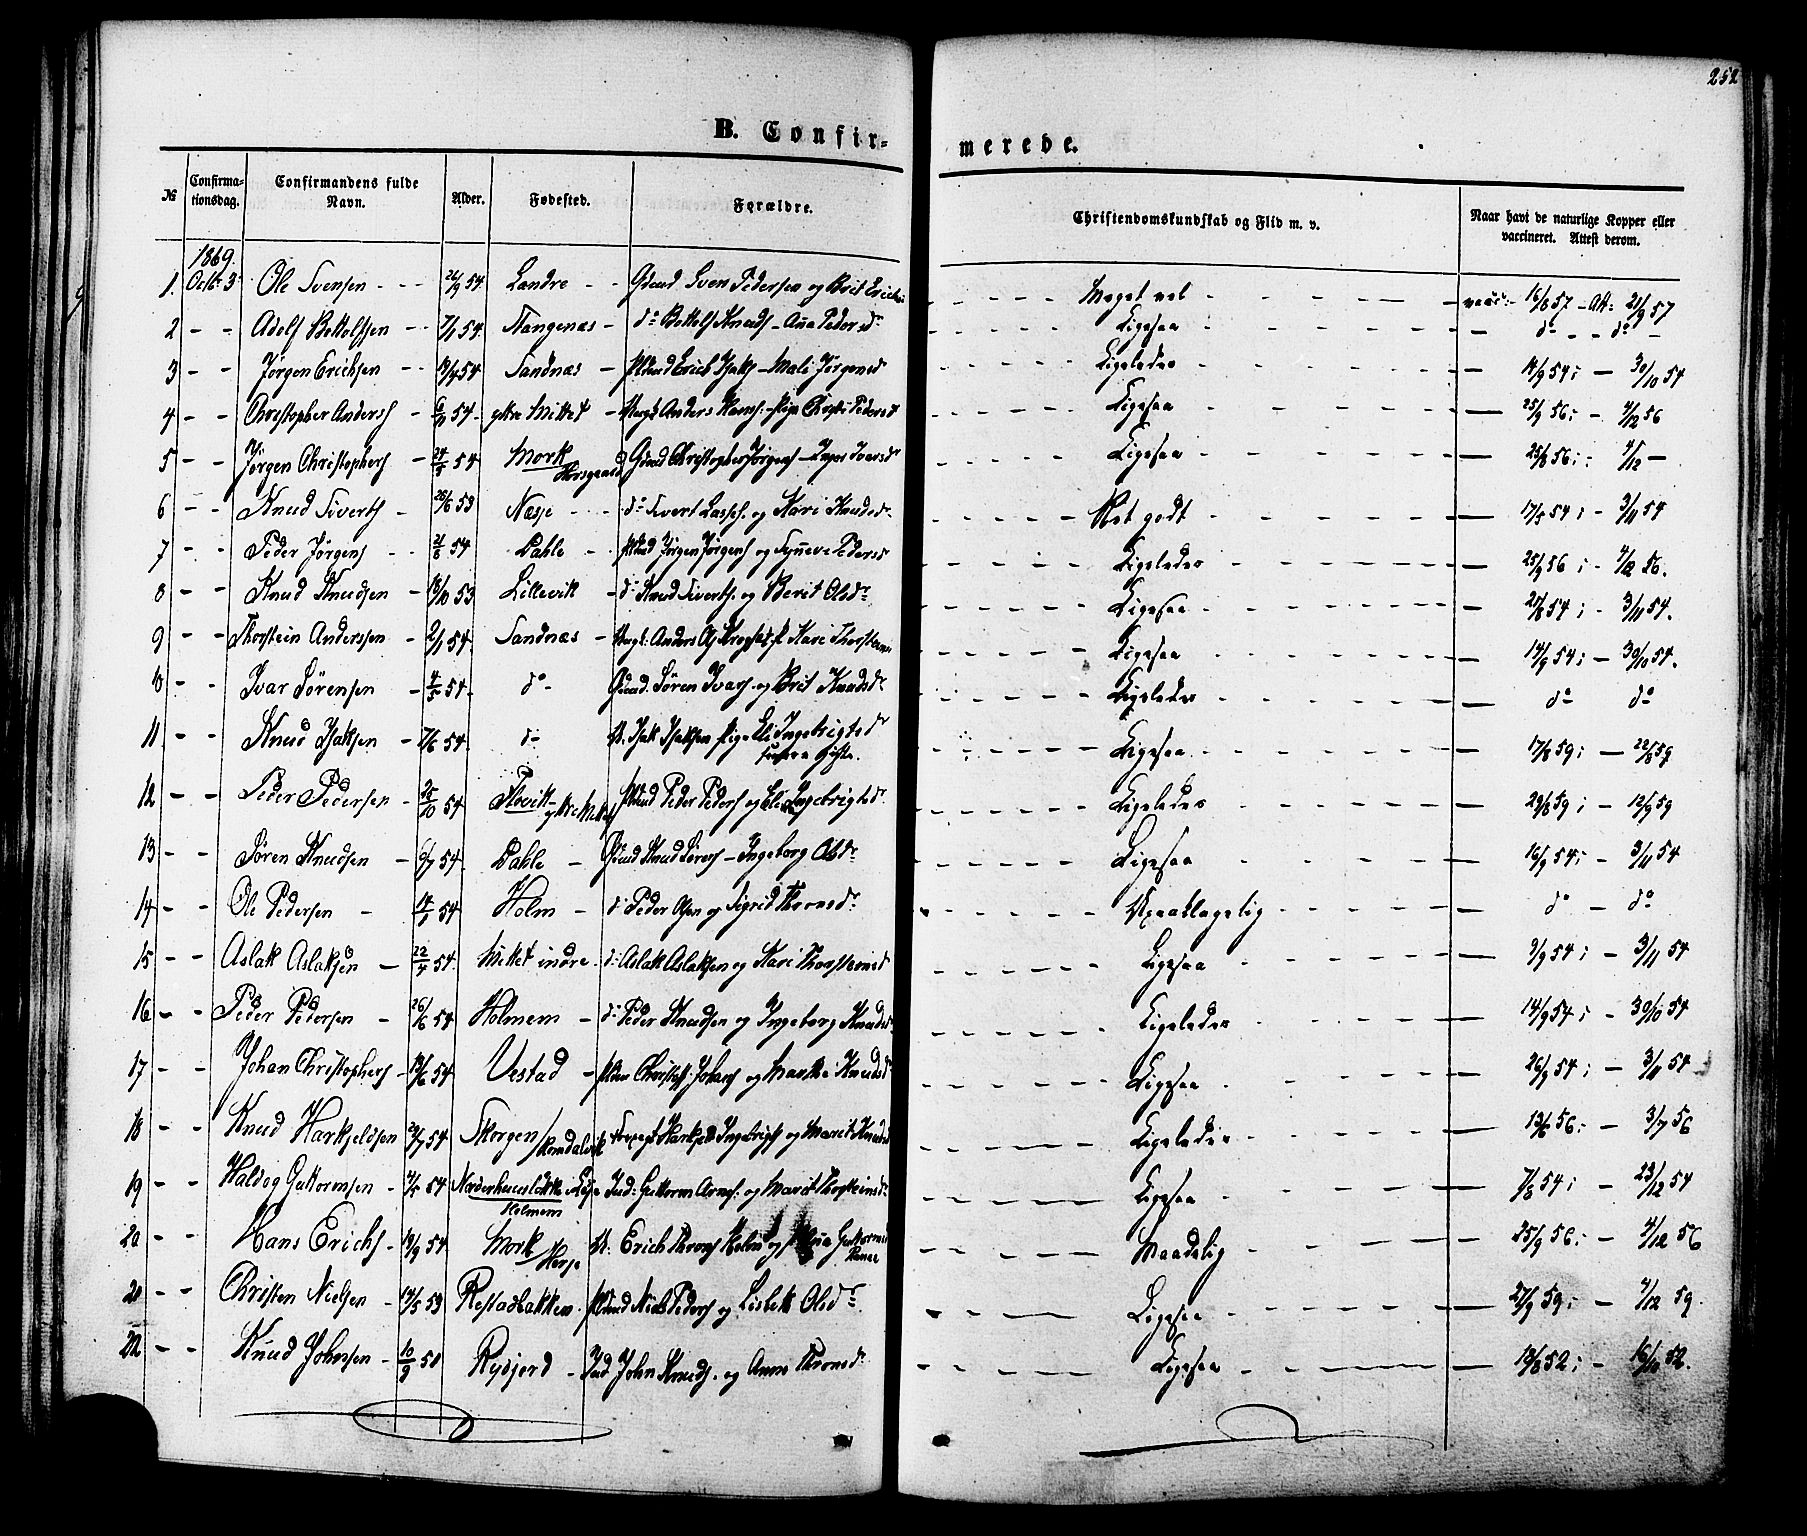 252
B. Confirmerede.
№ Confirmationsdag. Confirmandens fulde Navn. Alder. Fødested. Forældre. Christendomskundskab og Flid m. v. Naar havt de naturlige Kopper eller vaccineret. Attest derom.
1869.
1. Octbr 3 Ole Svensen 54 Landre Gdmd Sven Pedersen og Brit Erichs Meget vel vacc: 16/8 57 - Att: 21/9 57
2 - - Adolf Bottolfsen 7/1 54. Stangenæs do Bottolf Knuds - Ana Pedersdr Ligesaa do do
3 - - Jørgen Erichsen 54 Sandnæs Erich Isaks - Mali Jørgensd Ligeledes 14/9 54; - 30/10 54
4 - - Christopher Anders 54. ytre Mittet Anders Hans: - Pige Christi Pedersd Ligesaa 25/9 56; - 4/12 56
5 - - Jørgen Christophers 24/5 54 Mork Gdmd Christopher Jørgens - Inger Iversdr Ligesaa 25/8 56; 4/12 -
6 - - Knud Siverts 26/6 53 Næsje do Sivert Lasses. og Kari Knudsdr. Ret godt 17/5 54; - 3/11 54
7 - - Peder Jørgens 21/8 54 Dahle Jørgen Jørgens og Synnøve Pedersd Ligeledes 25/9 56; - 4/12 56.
8 - - Knud Knudsen 18/10 53 Lillevik do Knud Siverts. og Berit Olsdr Ligesaa 54; - 3/11 54.
9 - - Thorstein Anderssen 2/1 54. Sandnæs Anders Kari Thorsteins Ligesaa 14/9 54; - 30/10 54.
10 - - Ivar Sørensen 4/5 54. do Gdmd. Søren Ivars. og Brit Knudsdr Ligeledes do do
11 - - Knud Isaksen 7/6 54. do Isak Isaksen Pige Eli Ingebrigtsdr Ligesaa 17/8 59; - 22/8 59
12 - - Peder Pedersen 25/10 54 Peder Peders og Eli Ingebrigtsd. Ligeledes 29/8 59; - 12/9 59
13 - - Søren Knudsen 6/7 54. Dahle Gdmd Knud Sørens - Ingeborg Olsdr Ligesaa 16/9 54; - 3/11 54
14 - - Ole Pedersen 14/5 54 Holm do Peder Olsen og Sigrid Thronsdr. Upaaklagelig do - do
15 - - Aslak Aslaksen 22/4 54. Mittet indre do Aslak Aslaksen og Kari Thorsteinsd Ligesaa 9/9 54; - 3/11 54
16 - - Peder Pedersen 26/6 54 Holmem do Peder Knudsen og Ingeborg Knudsd. Ligeledes 14/9 54; - 30/10 54
17 - - Johan Christophers 13/6 54 Vestad Johans og Marthe Knudsd Ligesaa 26/9 54; - 3/11 54
18 - - Knud Harkjeldsen 54 Skorgen / Romdalsvik Harkjeld Ingebrigts og Marit Knudsd Ligeledes 13/6 56; - 3/7 56
19 - - Haldog Guttormsen 4/5 54 Holmem Ind: Guttorm Arnes: og Marit Thorsteinsdr Ligesaa 7/8 54; - 23/12 54
20 - - Hans Erichs 14/9 54. Mork Erich Throns Holm og Ana Guttormsd Maadelig 25/9 56; - 4/12 56
21 - - Christen Nielsen 14/5 53 Restadbakken Niels Pedersen og Lisbeth Olsdr Ligesaa 27/9 59; - 7/12 59.
22 - - Knud Johnsen 10/9 50 Rypjord Ind John Knuds. og Anne Thronsdr Ligesaa 13/8 52; - 16/10 52.